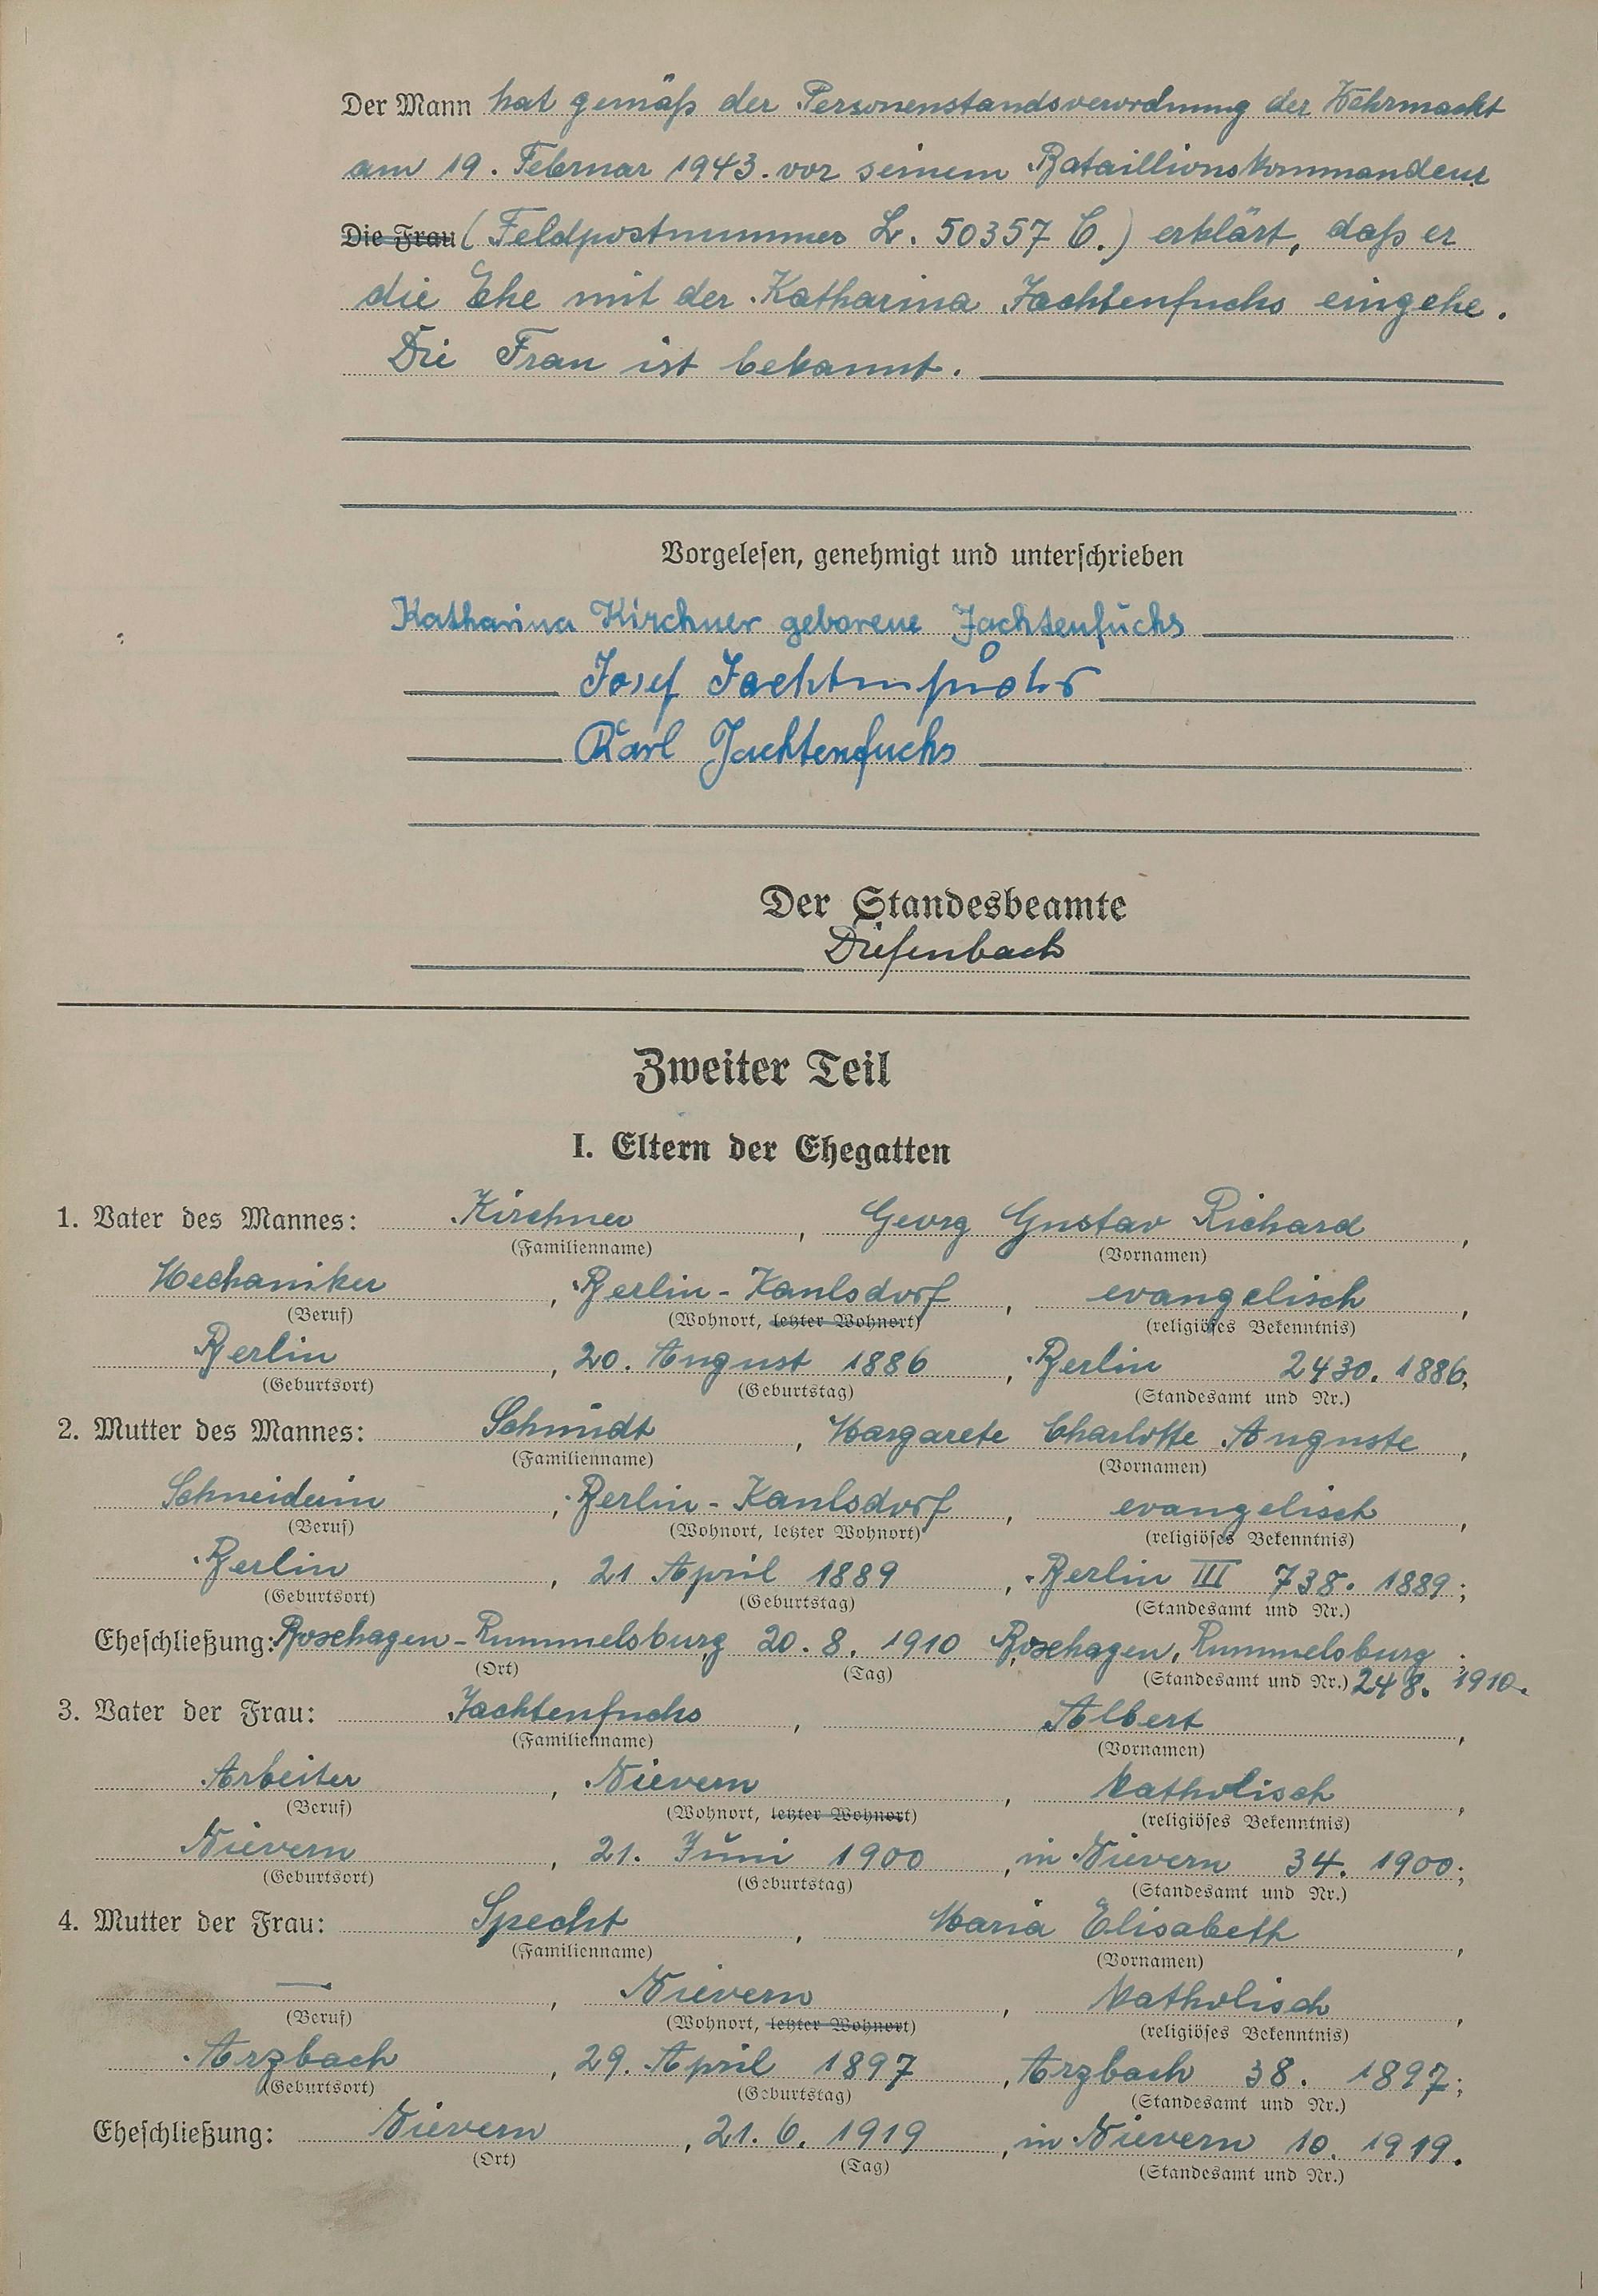 Der Mann hat gemäß der Personenstandsverordnung der Wehrmacht
am 19. Februar 1943 vor seinem Bataillionskommandeur
Die Frau (Feldpostnummer L. 50357 C.) erklärt, daß er
die Ehe mit der Katharina Jachtenfuchs eingehe.
Die Frau ist bekannt.
Vorgelesen, genehmigt und unterschrieben
Katharina Kirchner geborene Jachtenfuchs
Josef Jachtenfuchs
Karl Jachtenfuchs
Der Standesbeamte
Diefenbach
Zweiter Teil
I. Eltern der Ehegatten
1. Vater des Mannes: Kirchner, Georg Gustav Richard,
(Familienname) (Vornamen)
Mechaniker, Berlin-Kaulsdorf, evangelisch,
(Beruf) (Wohnort, letzter Wohnort) (religiöses Bekenntnis)
Berlin, 20. August 1886, Berlin 2430. 1886,
(Geburtsort) (Geburtstag) (Standesamt und Nr.)
2. Mutter des Mannes: Schmidt, Margarete Charlotte Auguste,
(Familienname) (Vornamen)
Schneiderin, Berlin-Kaulsdorf, evangelisch,
(Beruf) (Wohnort, letzter Wohnort) (religiöses Bekenntnis)
Berlin, 21 April 1889, Berlin III 738. 1889;
(Geburtsort) (Geburtstag) (Standesamt und Nr.)
Eheschließung: Boxhagen-Rummelsburg 20. 8. 1910 Boxhagen, Rummelsburg;
(Ort) (Tag) (Standesamt und Nr.) 248. 1910.
3. Vater der Frau: Jachtenfuchs, Albert,
(Familienname) (Vornamen)
Arbeiter, Nievern, katholisch,
(Beruf) (Wohnort, letzter Wohnort) (religiöses Bekenntnis)
Nievern, 21. Juni 1900, in Nievern 34. 1900;
(Geburtsort) (Geburtstag) (Standesamt und Nr.)
4. Mutter der Frau: Specht, Maria Elisabeth,
(Familienname) (Vornamen)
—, Nievern, katholisch,
(Beruf) (Wohnort, letzter Wohnort) (religiöses Bekenntnis)
Arzbach, 29. April 1897, Arzbach 38. 1897;
(Geburtsort) (Geburtstag) (Standesamt und Nr.)
Eheschließung: Nievern, 21. 6. 1919, in Nievern 10. 1919.
(Ort) (Tag) (Standesamt und Nr.)